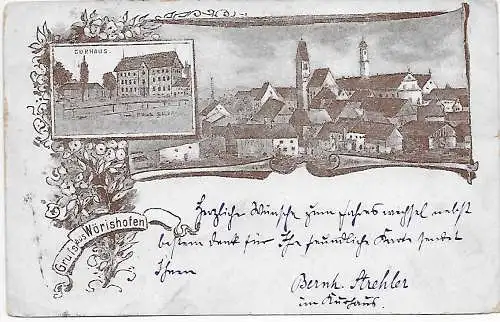 CURHAUS.
Gruss aus Wörishofen
Herzliche Wünsche zum Jahreswechsel nebst
bestem Dank für Ihre freundliche Karte sendet
Ihnen
Bernh. Strehler
im Kurhaus.